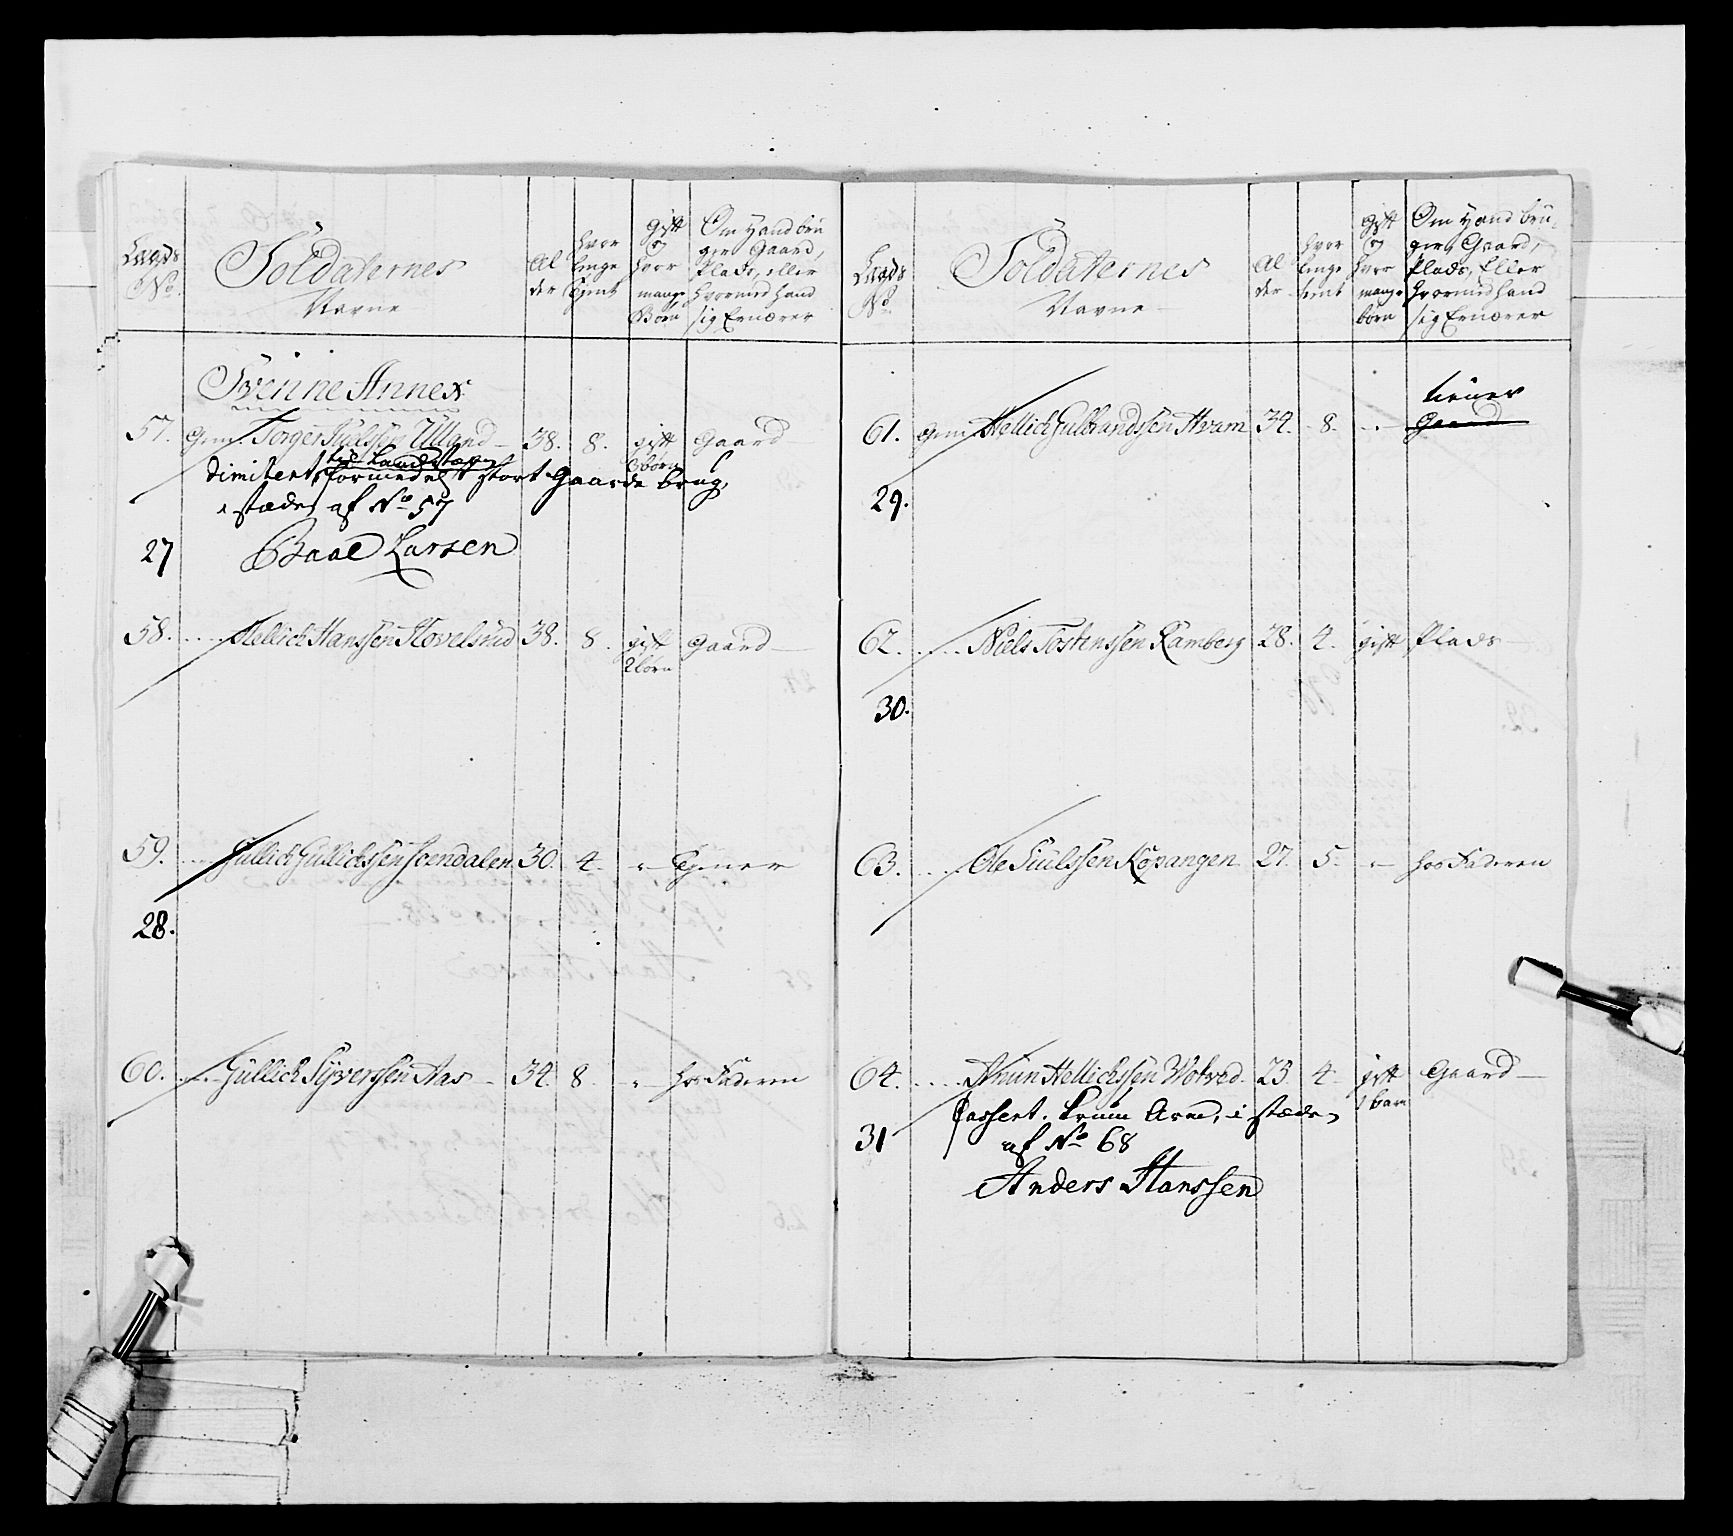 Lægds No. Soldaternes Navne Al der hvor længe tient gift og hvor mange Børn Om Hand brü
ger Gaard,
Plads, eller
hvormed hand
sig Ernærer
Svenne Annex
57. Gem. Torger Juelssen Ülland 38. 8. gift Gaard
børn
til Landeværn
Dimitert, formedelst stort Gaards brug,
i stæden af No 57
27 Paal Larsen
58. Hellich Hanssen Hovelsrud 38. 8. gift Gaard
2 børn
59. Gullich Gullichssen Scendalen 30. 4. " Tjener
28.
60. Güllich Syversen Aas 34. 8. " hos Faderen
Lægds No. Soldaternes Navne Al der hvor længe tient Gift og hvor mange børn Om Hand brü-
ger Gaard,
Plads, Eller
hvormed hand
sig Ernærer
tiener
61. Gem. Hellich Gulbrandssen Hvam 34. 8. " Gaard
29.
62. Niels Tostenssen Ramberg 28. 4. gift Plads
30.
63. Ole Juulssen Kopangen 27. 5. " hos Faderen
64. Amun Hellichssen Wotved 23. 4. gift Gaard
1 barn
Casseret. krum Arm, i stæden
31 af No 68
Anders Hanssen